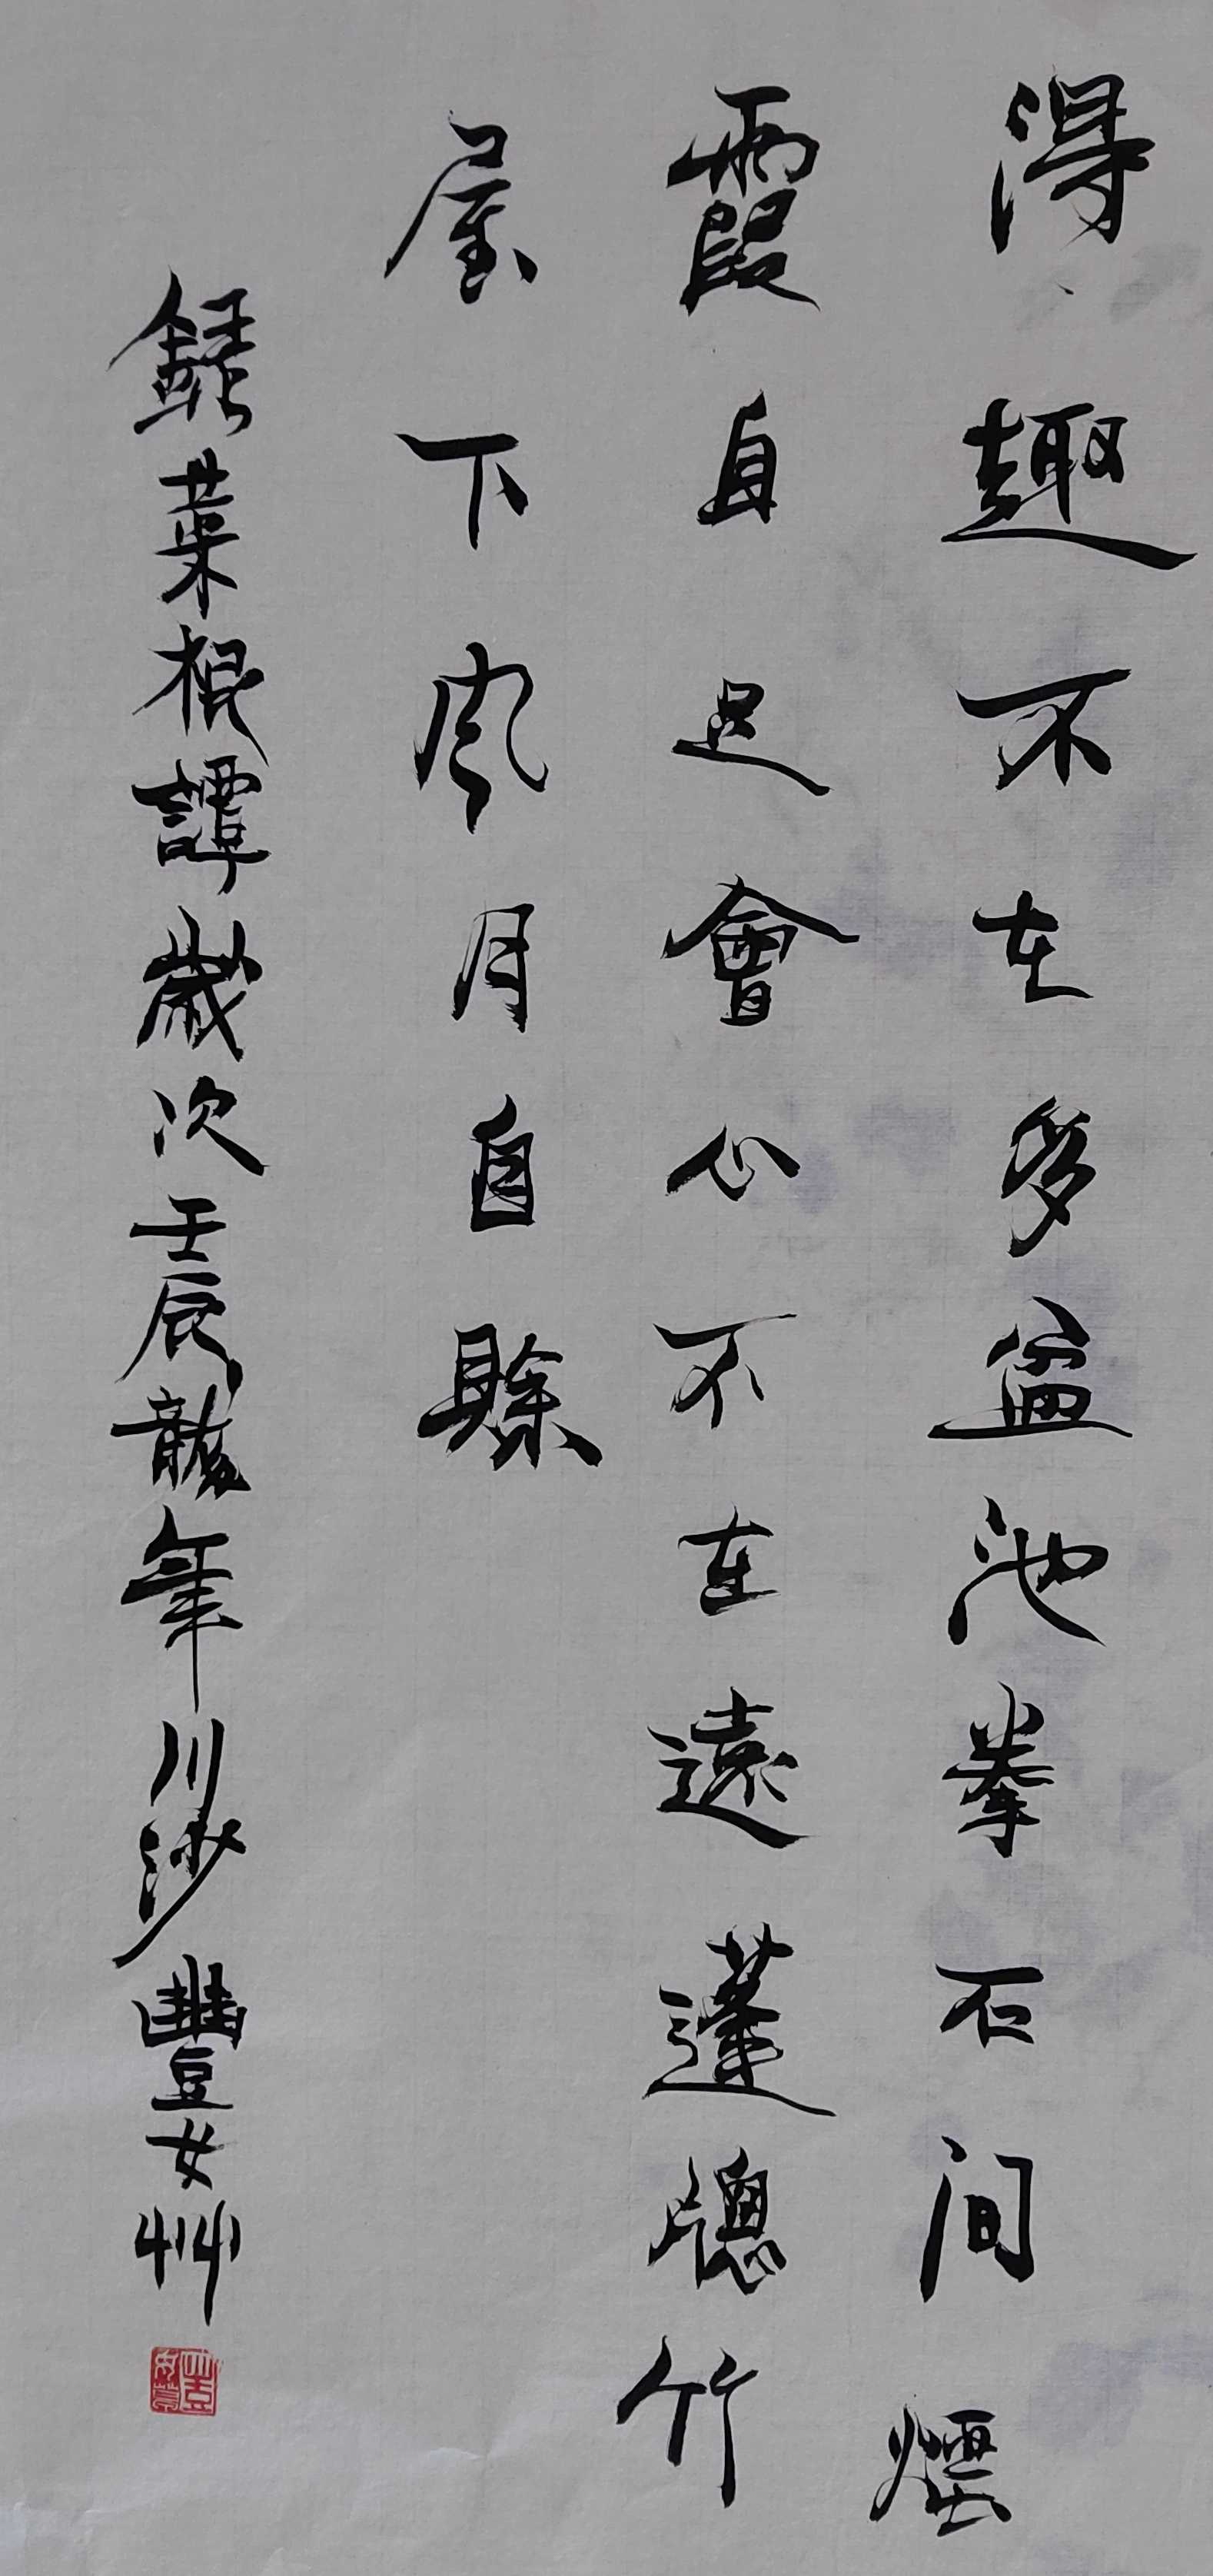 得趣不在多盆池拳石间煙
霞自足會心不在遠蓬牕竹
屋下風月自賒
錄菜根譚歲次壬辰龍年川沙豐女艸